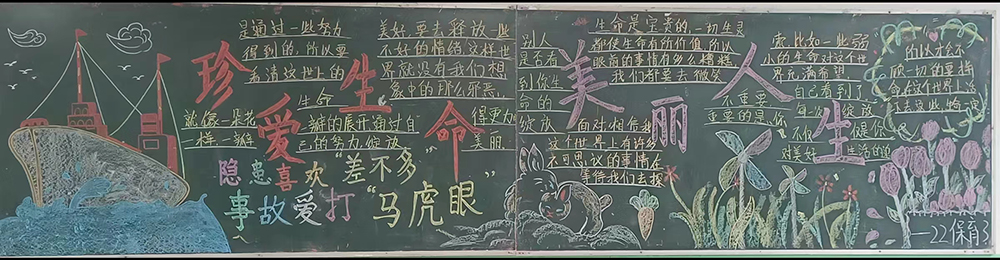 珍爱生命
美丽人生
是通过一些努力
得到的，所以要
看清这世上的
美好，要去释放一些
不好的情绪，这样世
界就没有我们想
象中的那么邪恶。
生命
就像一朵花
一样一瓣
瓣的展开通过自
己的努力绽放
得更力
美丽
隐患喜欢“差不多”
事故爱打“马虎眼”
别人
是否看
到你生
命的
绽放
生命是宝贵的，一切生灵
都使生命有所价值，所以
眼前的事情有多么糟糕
我们都要去微笑
面对，相信我
这个世界上有许多
不可思议的事情在
等待我们去探
索，比如一些弱
小的生命对这个世
界充满希望
不重要
重要的是你
自己看到了
每次绽放
不仅是你
对美好生活的追
一22保育3